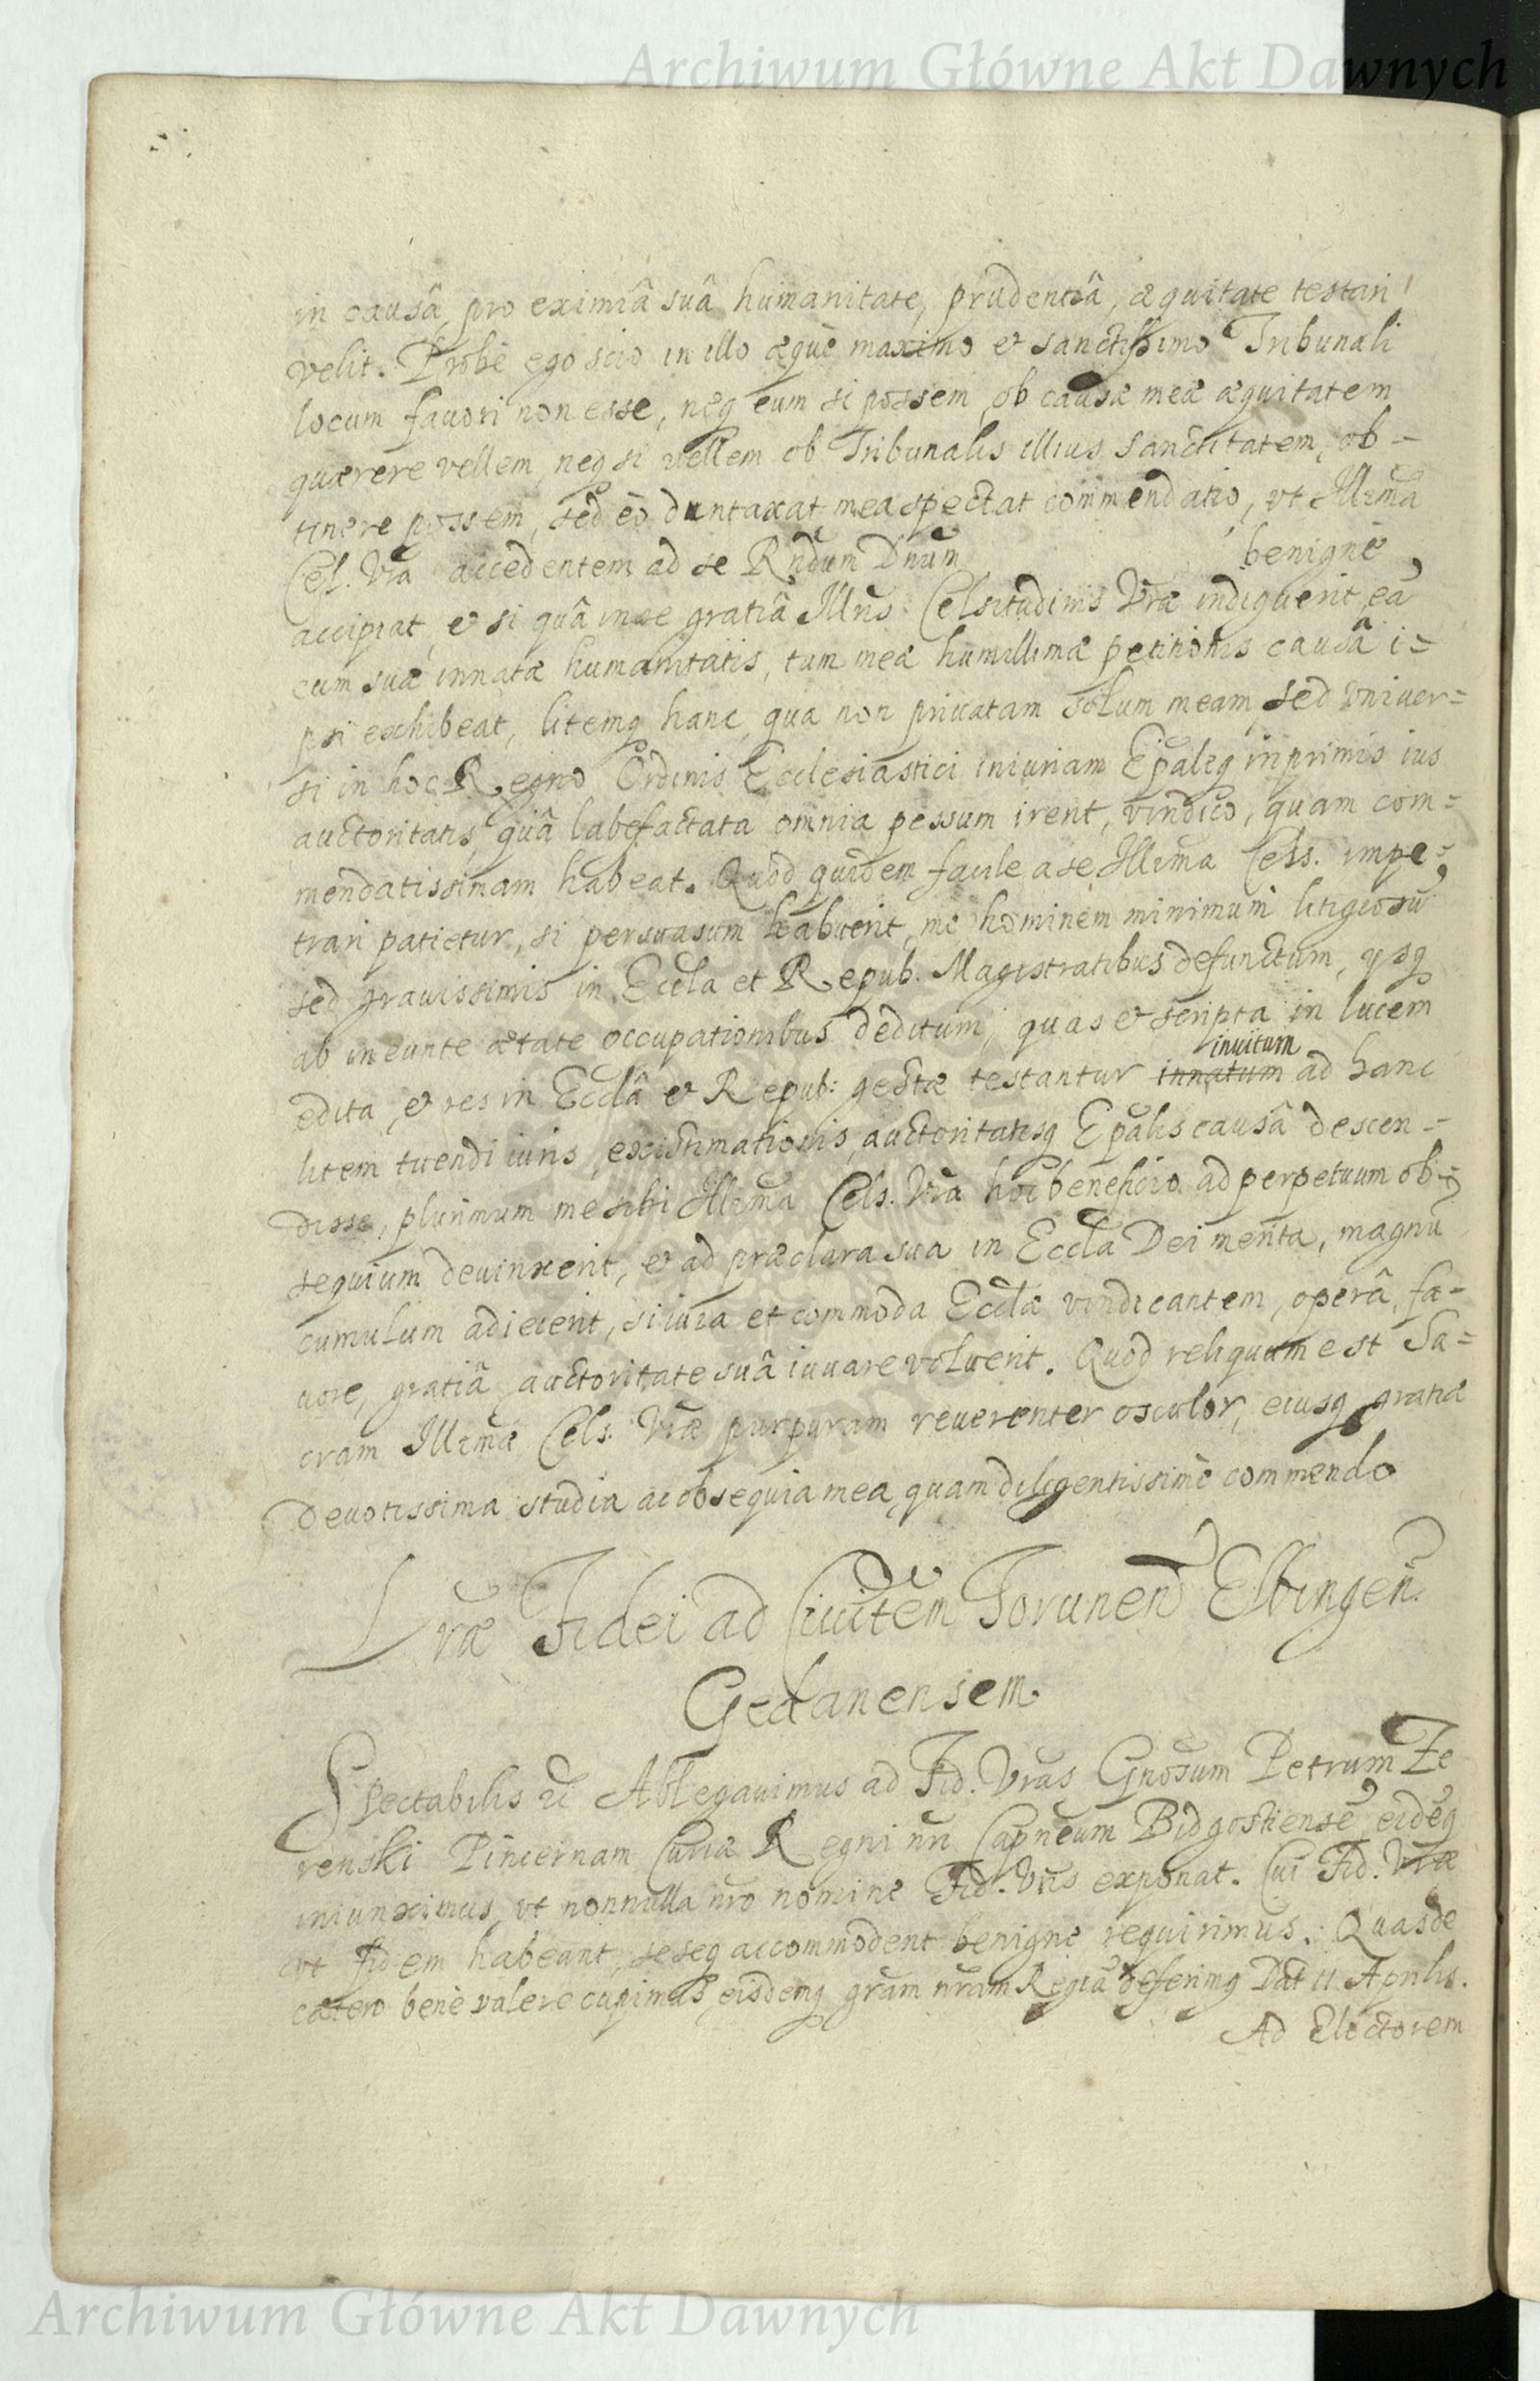 Archiwum Główne Akt Dawnych
in causâ, pro eximiâ suâ humanitate, prudentiâ, æquitate testari
velit. Probè ego scio in illo æquè maximo et sanctissimo Tribunali
locum fauori non esse, neq eum si possem, ob causæ meæ æquitatem
quærere vellem, neq si vellem ob Tribunalis illius sanctitatem, ob-
tinere possem, sed eò duntaxat mea spectat commendatio, vt Illma
Cel. Vra accedentem ad se Rndum Dnum benignè
accipiat, et si quâ in ee gratiâ Illris Celsitudinis Vræ indiguerit, eã
cum suæ innatæ humanitatis, tum meæ humillimæ petitionis causâ i=
psi exhibeat, litemq hanc, qua non priuatam solum meam, sed vniuer=
si in hoc Regno Ordinis Ecclesiastici iniuriam Epaleq inprimis ius
auctoritatis, quâ labefactata omnia pessum irent, vindico, quam com=
mendatissimam habeat. Quod quidem facile a se Illma Cels. impe=
trari patietur, si persuasum habuerit, me hominem minimum litigiosũ
sed grauissimis in Eccla et Repub. Magistratibus defunctum, ysq
ab ineunte ætate occupationibus deditum, quas et scripta in lucem
edita, et res in Ecclâ et Repub: gestæ testantur innatum inuitum ad hanc
litem tuendi iuris, existimationis, auctoritatisq Epalis causâ descen-
disse, plurimum me sibi Illma Cels. Vra hoc beneficio ad perpetuum ob=
sequium deuinxerit, et ad præclara sua in Eccla Dei merita, magnũ
cumulum adiecerit, si iura et commoda Ecclæ vindicantem, operâ, fa-
uore, gratiâ, auctoritate suâ iuuare voluerit. Quod reliquum est Sa=
cram Illmæ Cels. Vræ purpuram reuerenter osculor, eiusq gratiæ
deuotissima studia ac obsequia mea quam diligentissimè commendo
Lræ Fidei ad Ciuitem Torunen Elbingen
Gedanensem.
Spectabilis &c Ablegauimus ad Fid. Vras Gnosum Petrum Ze
renski Pincernam Curiæ Regni nri Capneum Bidgostiensẽ, eidẽq
iniunximus, vt nonnulla nro nomine Fid. Vris exponat. Cui Fid. Vræ
vt fidem habeant, seseq accommodent benignè requirimus. Quas de
cætero benè valere cupimus, eisdemq gram nram Regiã deferimq Dat 11 Aprilis.
Ad Electorem
Archiwum Główne Akt Dawnych